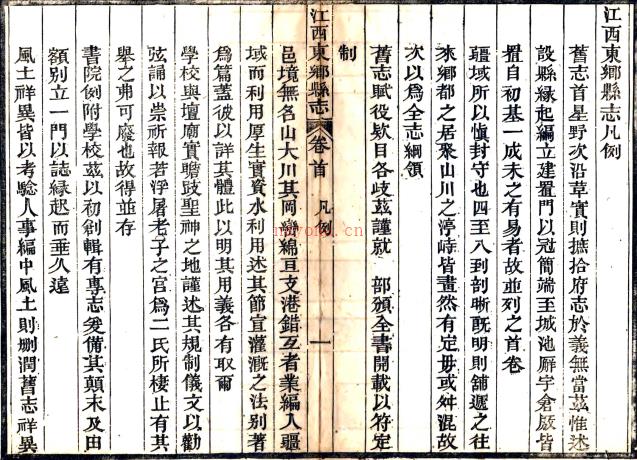 江西東鄉縣志凡例
舊志首星野次沿革實則摭拾府志於義無當茲惟述
設縣緣起編立建置門以冠簡端至城池廨宇倉厫皆
置自初基一成未之有易者故並列之首卷
疆域所以愼封守也四至八到剖晰旣明則鋪遞之往
來鄉都之居聚山川之渟峙皆畫然有定毋或舛混故
次以爲全志綱領
舊志賦役欵目各歧茲謹就 部頒全書開載以符定
制
江西東鄉縣志 卷首 凡例 一
邑境無名山大川其岡巒綿亘支港錯互者業編入疆
域而利用厚生實資水利用述其節宣灌漑之法別著
爲篇蓋彼以詳其體此以明其用義各有取爾
學校與壇廟實瞻跂聖神之地謹述其規制儀文以勸
弦誦以崇祈報若浮屠老子之宮爲二氏所棲止有其
舉之弗可廢也故得並存
書院例附學校茲以初創輯有專志爰備其顛末及田
額別立一門以誌緣起而垂久遠
風土祥異皆以考驗人事編中風土則刪潤舊志祥異